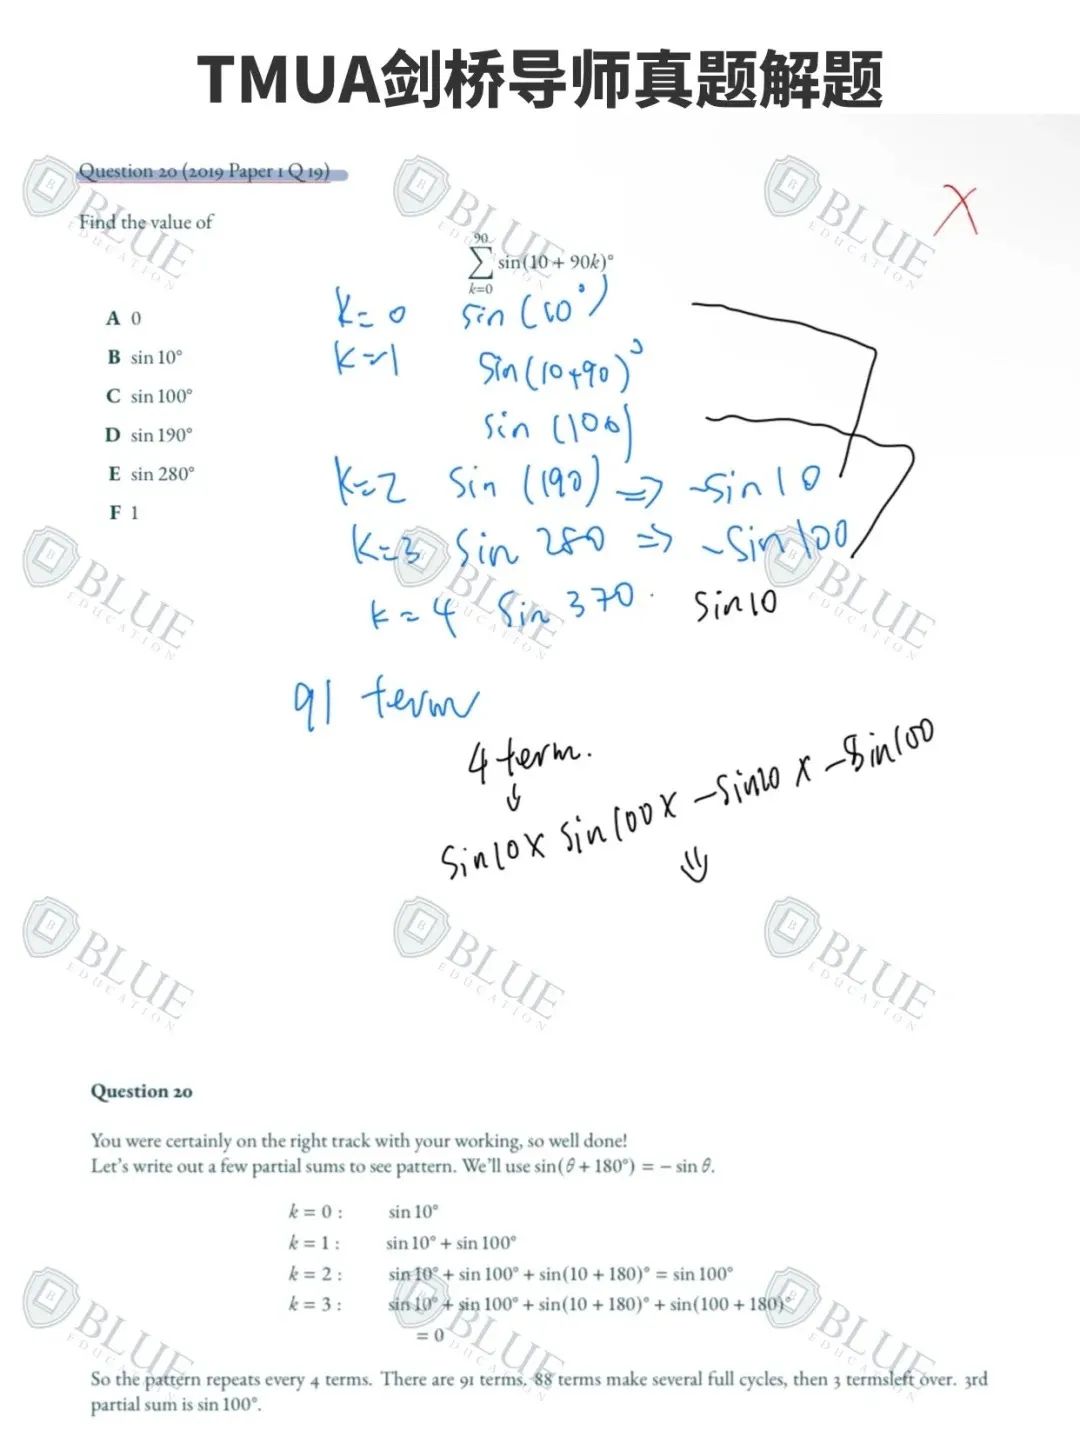 TMUA剑桥导师真题解题
Question 20 (2019 Paper 1 Q 19)
Find the value of
90
∑ sin(10 + 90k)°
k=0
A 0
B sin 10°
C sin 100°
D sin 190°
E sin 280°
F 1
k=0 sin (10°)
k=1 sin(10+90)°
sin (100)
k=2 sin (190) => -sin10
k=3 sin 280 => -sin100
k=4 sin 370. sin10
91 term
4 term.
↓
sin10x sin100x -sin10 x -sin100
⇓
Question 20
You were certainly on the right track with your working, so well done!
Let's write out a few partial sums to see pattern. We'll use sin(θ + 180°) = − sin θ.
k = 0 : sin 10°
k = 1 : sin 10° + sin 100°
k = 2 : sin 10° + sin 100° + sin(10 + 180)° = sin 100°
k = 3 : sin 10° + sin 100° + sin(10 + 180)° + sin(100 + 180)°
= 0
So the pattern repeats every 4 terms. There are 91 terms. 88 terms make several full cycles, then 3 termsleft over. 3rd
partial sum is sin 100°.
BLUE
EDUCATION
BLUE
EDUCATION
BLUE
EDUCATION
BLUE
EDUCATION
BLUE
EDUCATION
BLUE
EDUCATION
BLUE
EDUCATION
BLUE
EDUCATION
BLUE
EDUCATION
BLUE
EDUCATION
BLUE
EDUCATION
BLUE
EDUCATION